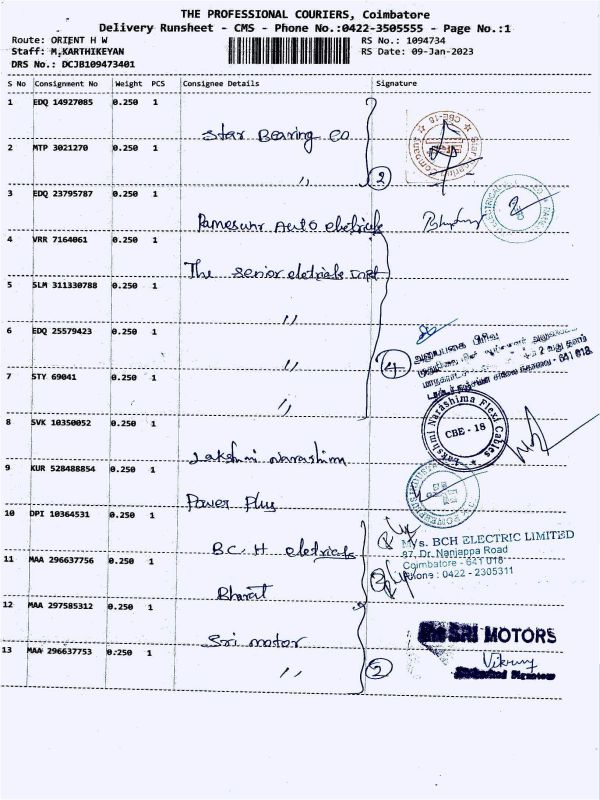 THE PROFESSIONAL COURIERS, Coimbatore
Delivery Runsheet - CMS - Phone No.:0422-3505555 - Page No.:1
Route: ORIENT H W
RS No.: 1094734
Staff: M.KARTHIKEYAN
RS Date: 09-Jan-2023
DRS No.: DCJB109473401
S No Consignment No Weight PCS Consignee Details Signature
1 EDQ 14927085 0.250 1
Star Bearing Co
2 MTP 3021270 0.250 1
〃 2
3 EDQ 23795787 0.250 1
Pameswar Auto eletricals
4 VRR 7164061 0.250 1
The senior eletricals Dept
5 SLM 311330788 0.250 1
〃
6 EDQ 25579423 0.250 1
〃 4
- 641 018.
7 STY 69041 0.250 1
〃
Lakshmi Narashima Flexi Cables
CBE - 18
8 SVK 10350052 0.250 1
Lakshmi Narashim
9 KUR 528488854 0.250 1
Power Plus
10 DPI 10364531 0.250 1
B.C.H eletricals
M/s. BCH ELECTRIC LIMITED
97, Dr. Nanjappa Road
Coimbatore - 641 018
Phone : 0422 - 2305311
11 MAA 296637756 0.250 1
Bharat
12 MAA 297585312 0.250 1
Sri motor
SRI MOTORS
13 MAA 296637753 0.250 1
〃 2